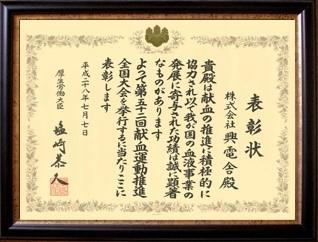 表彰状
株式会社 興電舎 殿
貴殿は献血の推進に積極的に
協力され以て我が国の血液事業の
発展に寄与された功績は誠に顕著
なものがあります
よって第五十二回献血運動推進
全国大会を挙行するに当たりここに
表彰します
平成二十八年七月七日
厚生労働大臣
塩崎恭久